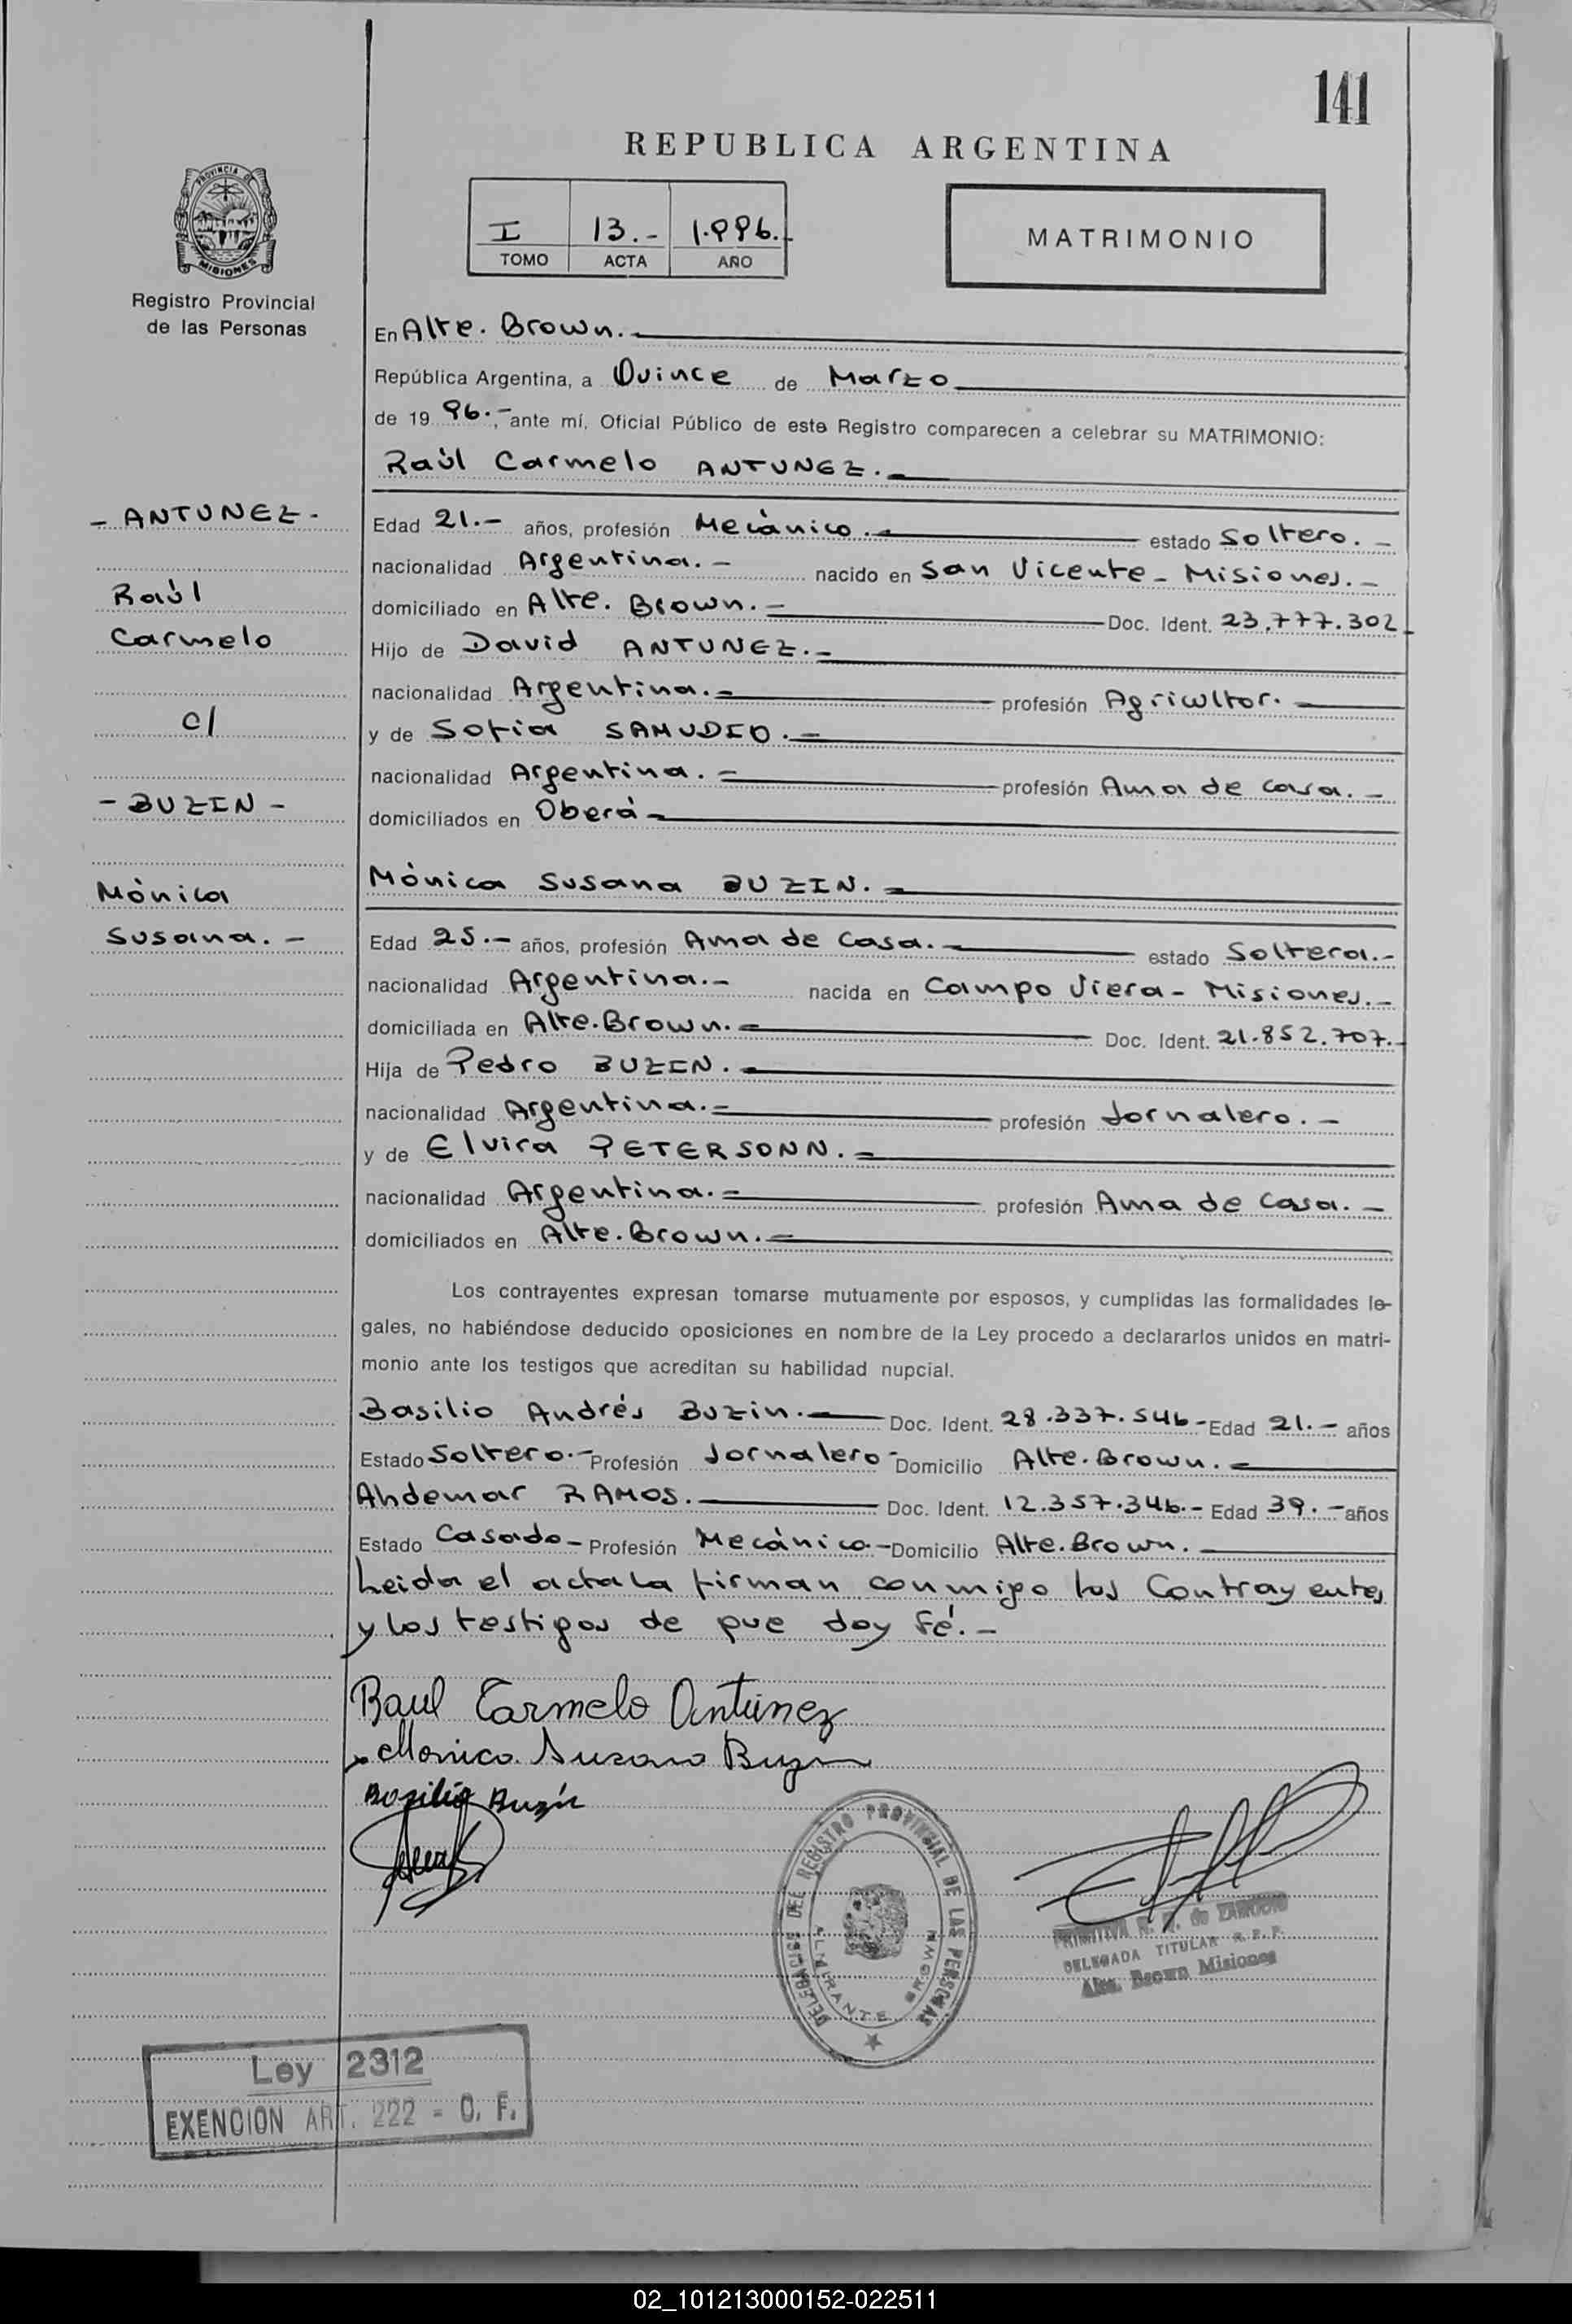 141
REPUBLICA ARGENTINA
PROVINCIA DE
MISIONES
Registro Provincial
de las Personas
I 13.- 1.996.-
TOMO ACTA AÑO
MATRIMONIO
En Alte. Brown.-
República Argentina, a Quince de Marzo
de 19 96.-, ante mí, Oficial Público de este Registro comparecen a celebrar su MATRIMONIO:
Raúl Carmelo ANTUNEZ.-
- ANTUNEZ -
Raúl
Carmelo
c/
- BUZIN -
Mónica
Susana.-
Edad 21.- años, profesión Mecánico.- estado Soltero.-
nacionalidad Argentina.- nacido en San Vicente - Misiones.-
domiciliado en Alte. Brown.- Doc. Ident. 23.777.302.-
Hijo de David ANTUNEZ.-
nacionalidad Argentina.- profesión Agricultor.-
y de Sofia SAMUDIO.-
nacionalidad Argentina.- profesión Ama de casa.-
domiciliados en Oberá-
Mónica Susana BUZIN.-
Edad 25.- años, profesión Ama de Casa.- estado Soltera.-
nacionalidad Argentina.- nacida en Campo Viera - Misiones.-
domiciliada en Alte. Brown.- Doc. Ident. 21.852.707.-
Hija de Pedro BUZIN.-
nacionalidad Argentina.- profesión Jornalero.-
y de Elvira PETERSONN.-
nacionalidad Argentina.- profesión Ama de Casa.-
domiciliados en Alte. Brown.-
Los contrayentes expresan tomarse mutuamente por esposos, y cumplidas las formalidades le-
gales, no habiéndose deducido oposiciones en nombre de la Ley procedo a declararlos unidos en matri-
monio ante los testigos que acreditan su habilidad nupcial.
Basilio Andrés Buzin.- Doc. Ident. 28.337.546- Edad 21.- años
Estado Soltero.- Profesión Jornalero- Domicilio Alte. Brown.-
Ahdemar RAMOS.- Doc. Ident. 12.357.346.- Edad 39.- años
Estado Casado- Profesión Mecánico- Domicilio Alte. Brown.
Leida el acta la firman conmigo los Contrayentes
y los testigos de que doy fé.-
Raul Carmelo Antunez
Monica Susana Buzin
Basilio Buzin
DELEGACION DEL REGISTRO PROVINCIAL DE LAS PERSONAS
ALMIRANTE BROWN
PRIMITIVA
DELEGADA TITULAR R. P. P.
Alte. Brown Misiones
Ley 2312
EXENCION ART. 222 - C. F.
02_101213000152-022511